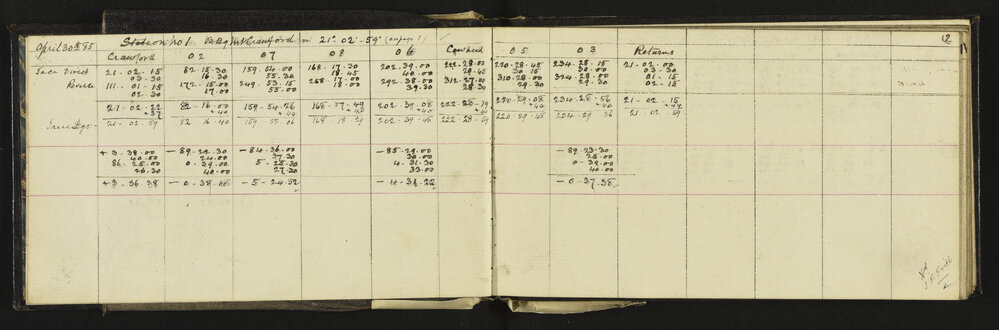 April 30th 85 Station No 1 Mt Crawford 21° 02' 59" (see page 1) 12
Crawford 02 07 08 06 Cowhead 05 03 Returns
Face Direct 21 . 02 . 15 82 . 15 . 30 159 . 54 . 00 168 . 17 . 30 202 . 39 . 00 222 . 28 . 00 220 . 28 . 45 234 . 28 . 15 21 . 02 . 00
03 . 30 16 . 30 55 . 30 18 . 45 40 . 00 29 . 45 30 . 15 30 . 00 03 . 30
111 . 01 . 15 172 . 15 . 00 249 . 53 . 15 268 . 17 . 00 292 . 38 . 00 312 . 27 . 00 310 . 28 . 00 324 . 28 . 00 01 . 15
02 . 30 17 . 00 55 . 00 18 . 00 39 . 30 28 . 30 29 . 30 29 . 30 02 . 15
21 . 02 . 22 82 . 16 . 00 159 . 54 . 26 168 . 17 . 49 202 . 39 . 08 222 . 28 . 19 220 . 29 . 08 234 . 28 . 56 21 . 02 . 15
+ 37 + 40 + 40 + 40 + 40 + 40 + 40 + 44
21 . 02 . 59 82 . 16 . 40 159 55 . 06 168 18 29 202 . 39 . 48 222 . 28 . 59 220 . 29 . 48 234 . 29 36 21 . 02 . 59
+ 3 . 39 . 00 - 89 . 22 . 30 - 84 . 36 . 00 - 85 . 29 . 00 - 89 . 23 . 30
40 . 00 24 . 00 37 . 30 30 . 00 25 . 00
86 . 25 . 00 0 . 39 . 00 5 . 25 . 30 4 . 31 . 30 0 . 39 . 00
26 . 30 40 . 00 27 . 30 33 . 00 40 . 00
+ 3 . 36 . 38 - 0 . 38 . 08 - 5 . 24 . 52 - 0 . 37 . 38